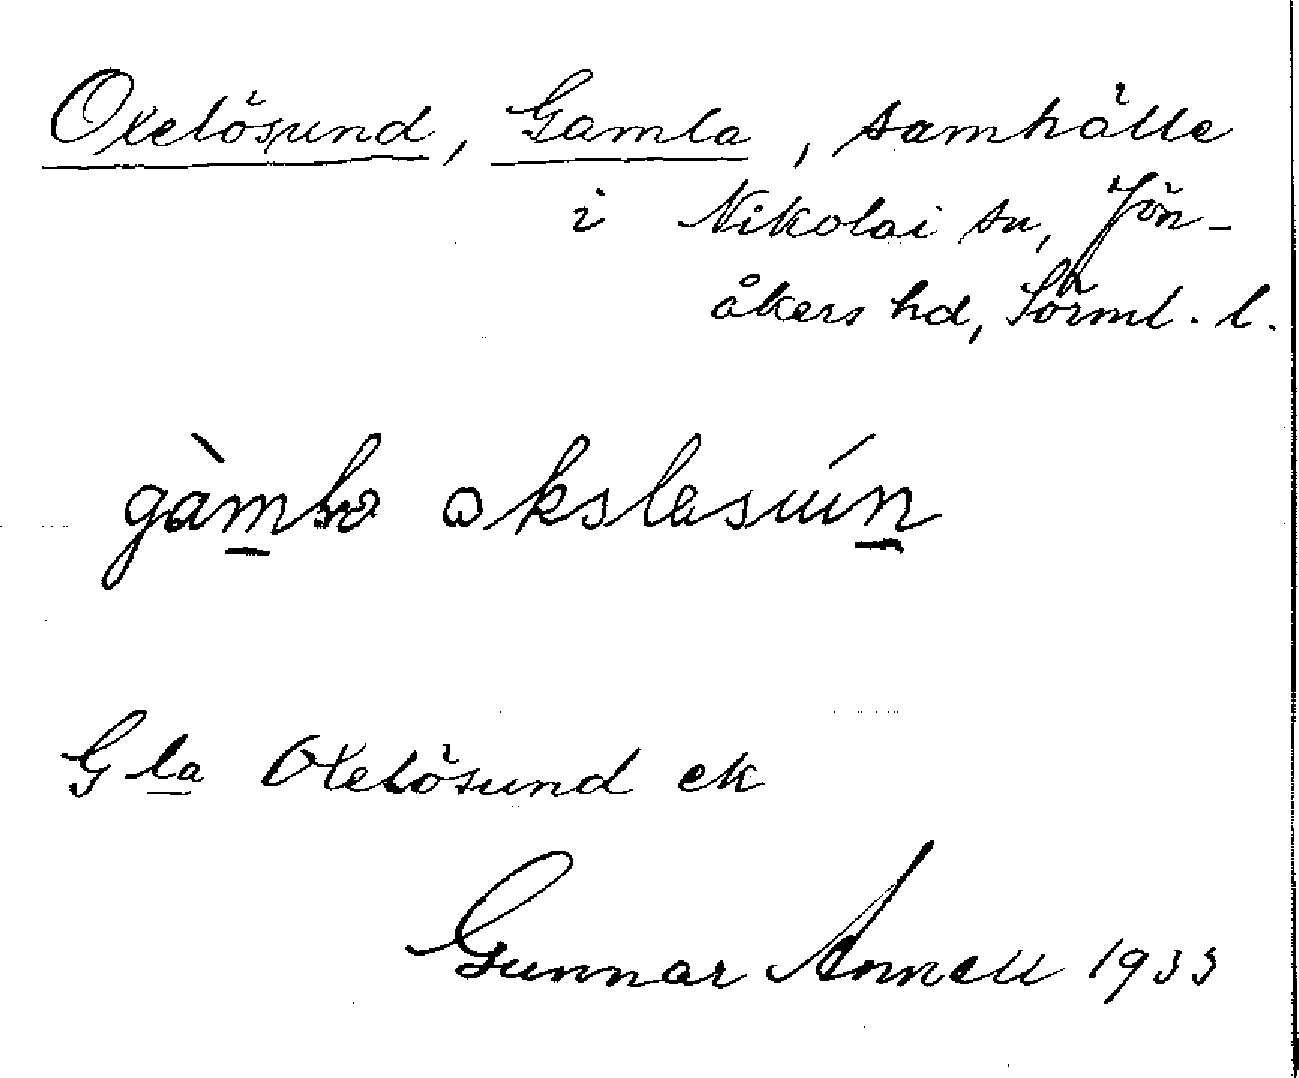 Oxelösund, Gamla, samhälle
i Nikolai sn, Jön-
åkers hd, Sörml. l.
gàmla okslesuún
Gla Oxelösund ek
Gunnar Annell 1933